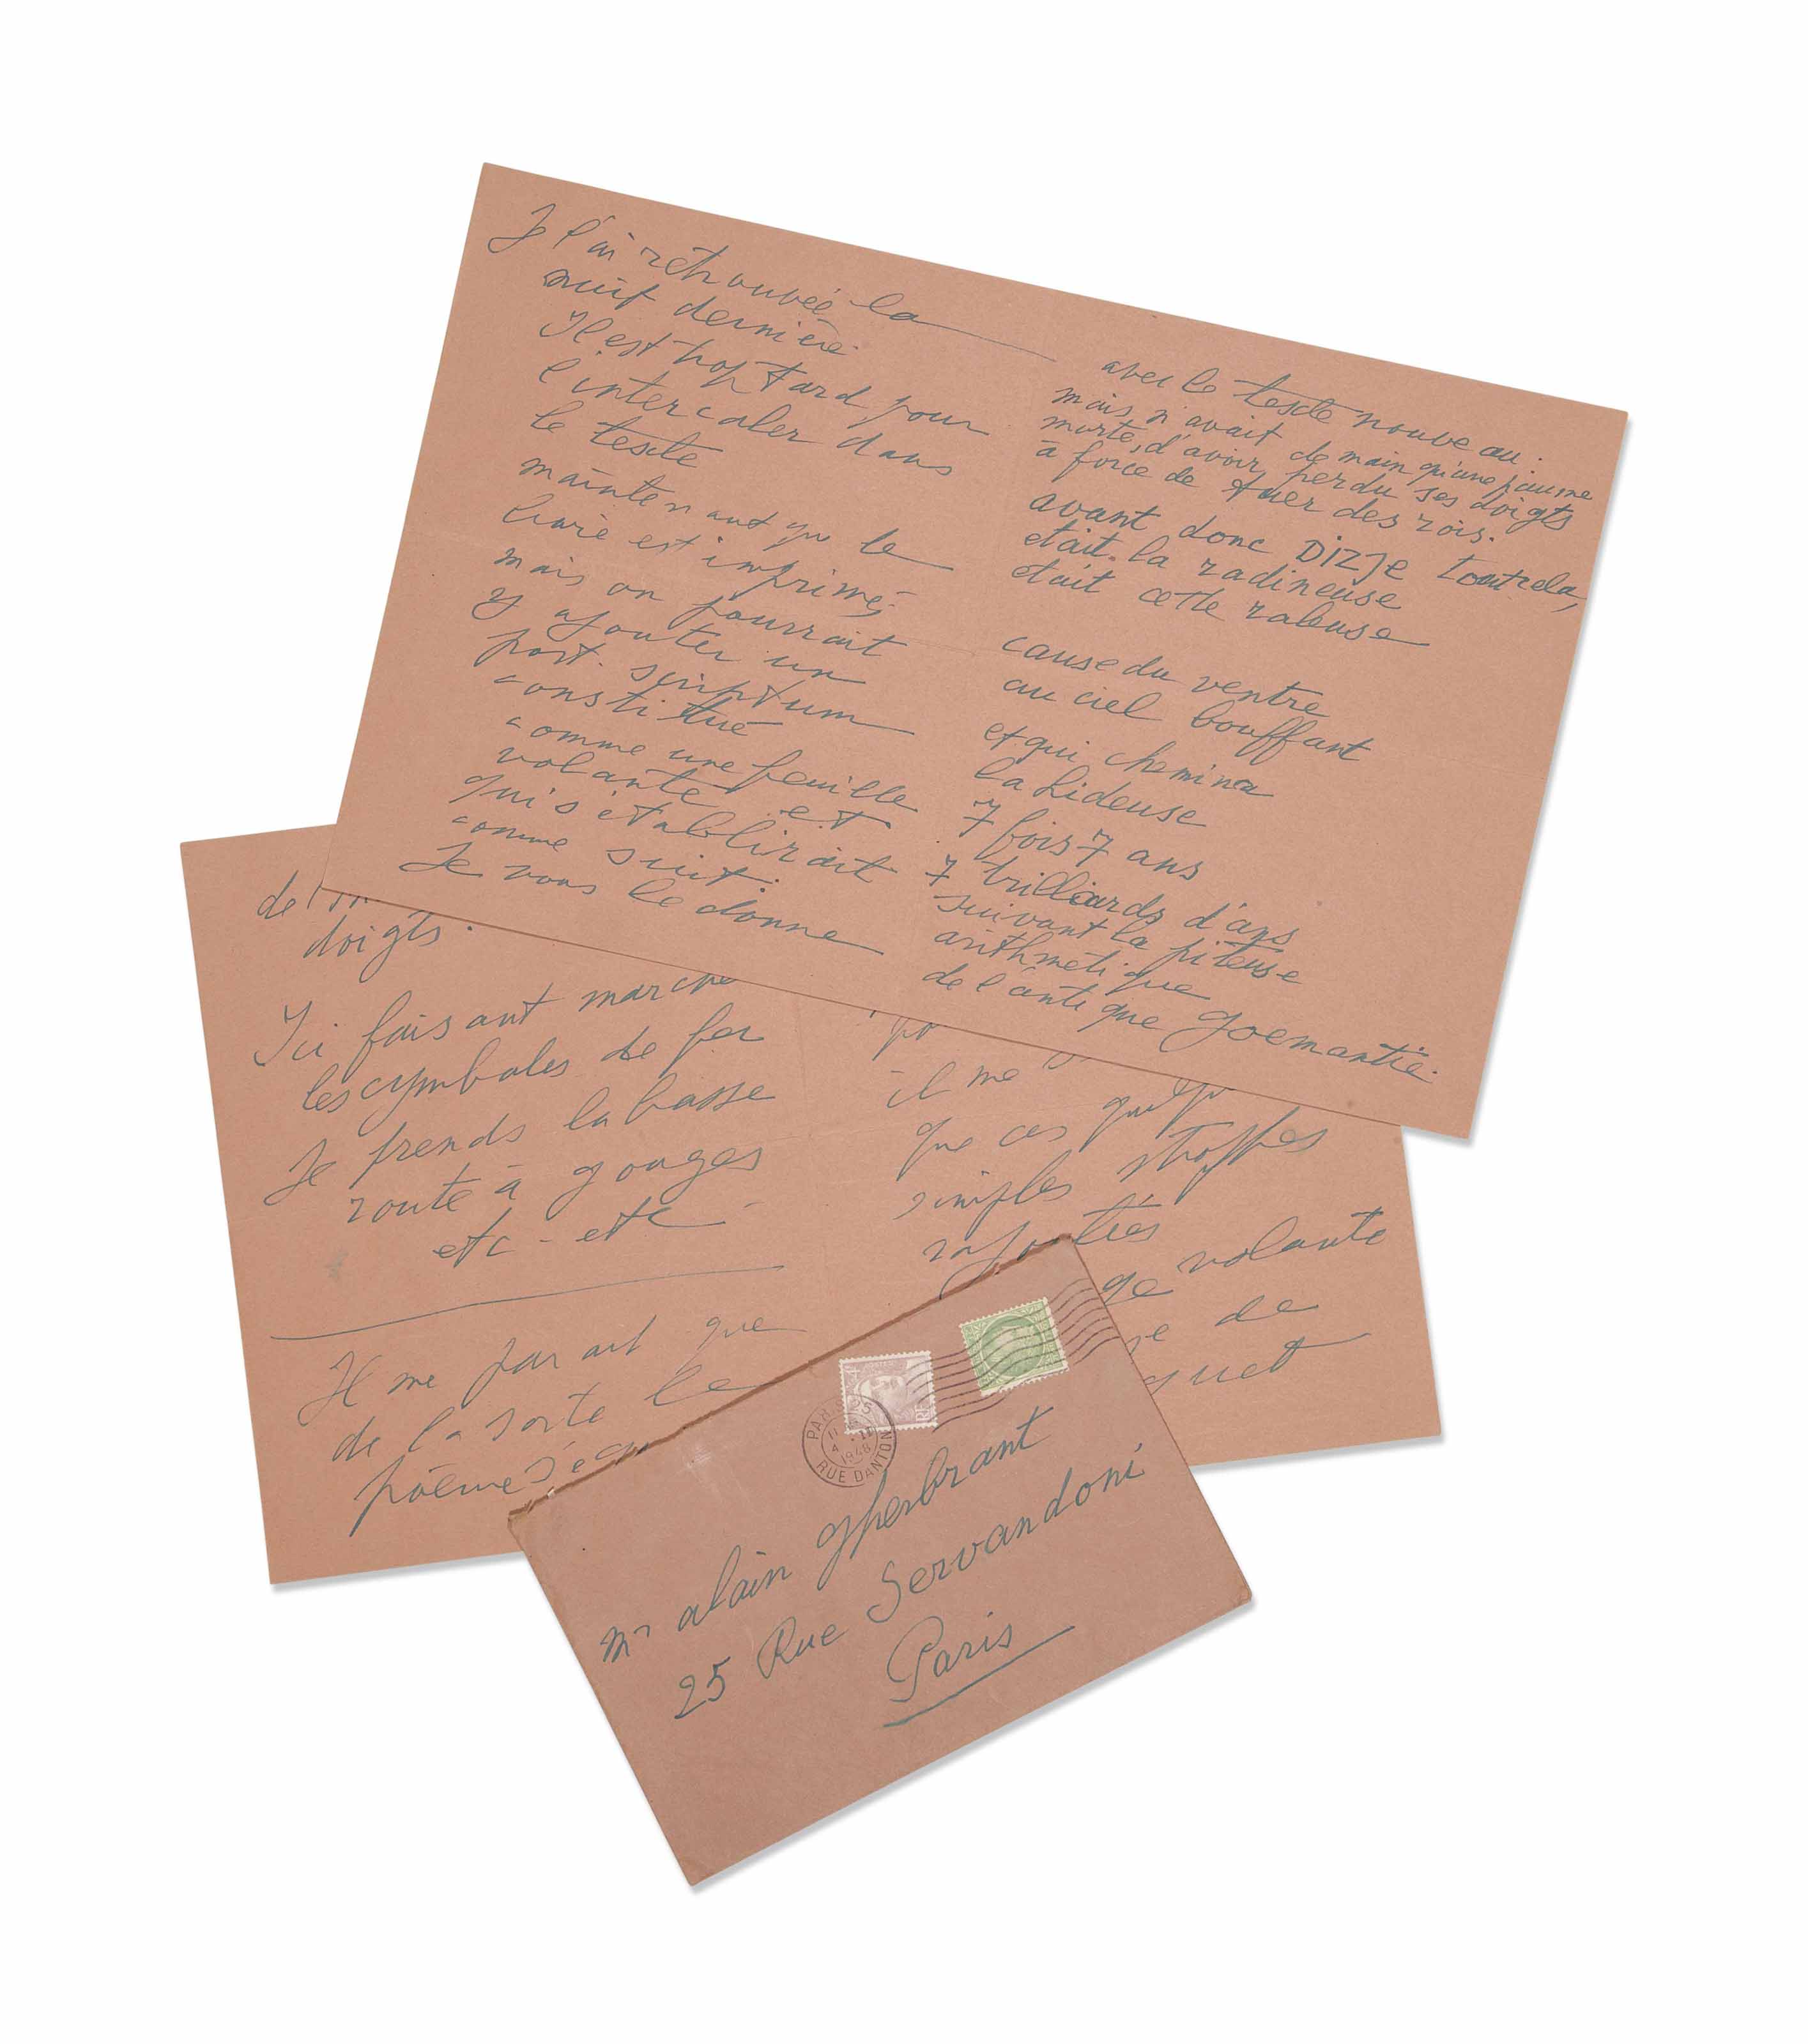 Je l'ai retrouvée la
nuit dernière.
Il est trop tard pour
l'intercaler dans
le texte
maintenant que le
livre est imprimé,
mais on pourrait
y ajouter un
post-scriptum
constitué
comme une feuille
volante et
qui s'établirait
comme suit.
Je vous le donne
avec le texte nouveau.
mais n'avait de main qu'une paume
morte, d'avoir perdu ses doigts
à force de tuer des rois.
avant donc DIZJE tout cela,
était la radineuse
était cette rabeuse
cause du ventre
au ciel bouffant
et qui chemina
la hideuse
7 fois 7 ans
7 trilliards d'ans
suivant la piteuse
arithmétique
de l'antique goemantie.
doigts.
Ici faisant marche
les cymbales de fer
Je prends la basse
route à gouges
etc - etc -
Il me parait que
de la sorte le
poème
il me
que ces quelqu
simples strophes
rajoutées
volante
de
quet
PARIS 25
4 - II
1948
RUE DANTON
Mr alain gherbrant
25 Rue Servandoni
Paris